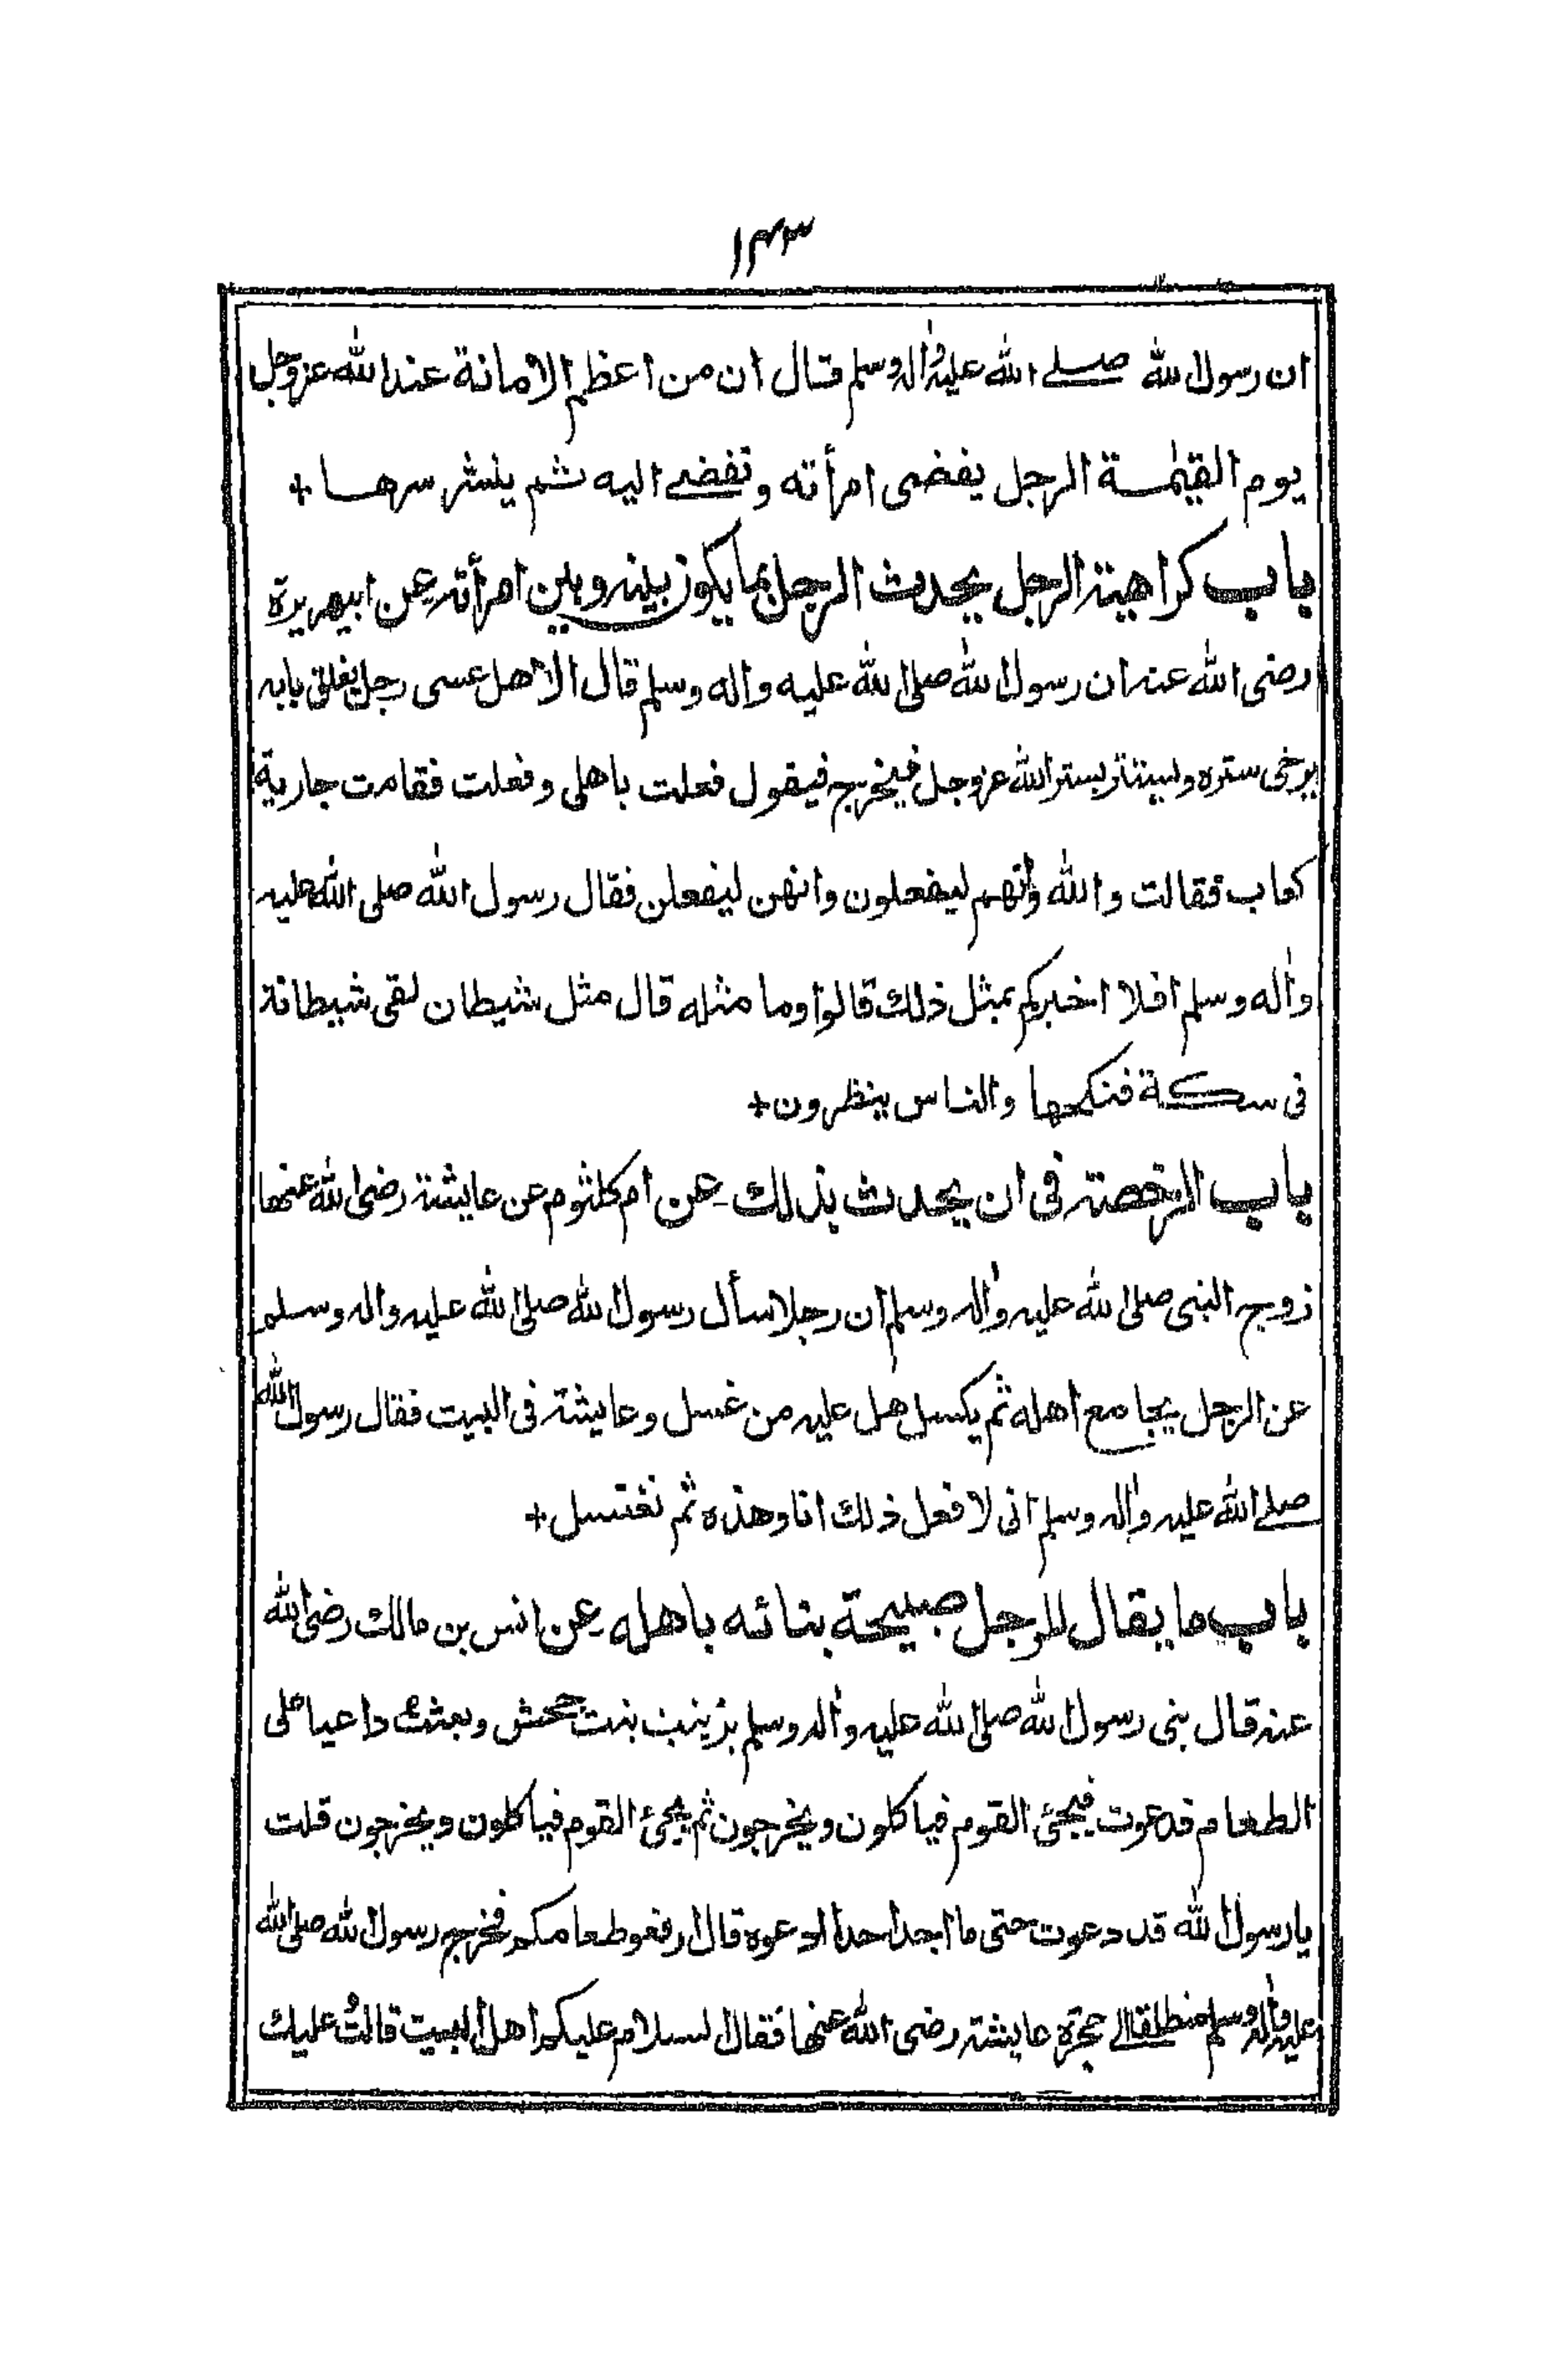 ١٤٣
ان رسول الله صلے الله عليه واله وسلم قال ان من اعظم الامانة عند الله عز وجل
يوم القيمة الرجل يفضى امرأته وتفضے اليه ثم ينشر سرها +
باب كراهية الرجل يحدث الرجل بما يكون بينه وبين امرأته عن ابيهريرة
رضى الله عنه ان رسول الله صلى الله عليه واله وسلم قال الا هل عسى رجل يغلق بابه
يرخى ستره ويستتر بستر الله عز وجل فيخرج فيقول فعلت باهلى وفعلت فقامت جارية
كعاب فقالت والله وانهم ليفعلون وانهن ليفعلن فقال رسول الله صلى الله عليه
واله وسلم افلا اخبركم بمثل ذلك قالوا وما مثله قال مثل شيطان لقى شيطانة
فى سكة فنكحها والناس ينظرون +
باب الرخصة فى ان يحدث بذلك عن ام كلثوم عن عايشة رضى الله عنها
زوج النبى صلى الله عليه واله وسلم ان رجلا سأل رسول الله صلى الله عليه واله وسلم
عن الرجل يجامع اهله ثم يكسل هل عليه من غسل وعايشة فى البيت فقال رسول الله
صلے الله عليه واله وسلم انى لافعل ذلك انا وهذه ثم نغتسل +
باب ما يقال للرجل صبيحة بنائه باهله عن انس بن مالك رضى الله
عنه قال بنى رسول الله صلى الله عليه واله وسلم بزينب بنت جحش وبعثت داعيا على
الطعام فدعوت فيجئ القوم فياكلون ويخرجون ثم يجئ القوم فياكلون ويخرجون قلت
يا رسول الله قد دعوت حتى ما اجد احدا ادعوه قال ارفعو طعامكم فخرج رسول الله صلى الله
عليه واله وسلم منطلقا الے حجرة عايشة رضى الله عنها فقال السلام عليكم اهل البيت قالت عليك